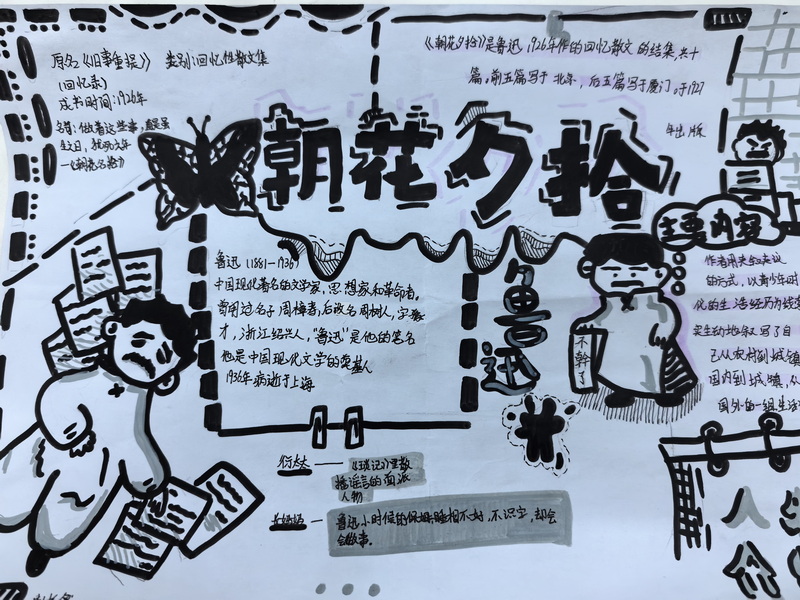 原名《旧事重提》 类别:回忆性散文集
(回忆录)
成书时间:1926年
名言:做着这些事,
—《朝花夕拾》
《朝花夕拾》是鲁迅 1926年作的回忆散文的结集,共十
篇,前五篇写于北京,后五篇写于厦门,于1927
年出版
朝花夕拾
鲁迅 (1881—1936)
中国现代著名的文学家,思想家和革命者。
曾用过名字 周樟寿,后改名周树人,字豫
才,浙江绍兴人,“鲁迅”是他的笔名
他是中国现代文学的奠基人
1936年病逝于上海
鲁迅
不幹了
主要内容
的方式,以青少年时
化的生活经历为线
实生动地叙写了自
己从农村到城镇
国内到城镇,从
国外的一组生活
衍太太 —— 《琐记》里散
播谣言的
人物
— 鲁迅小时候的保姆睡相不好,不识字,却会
会做事。
人